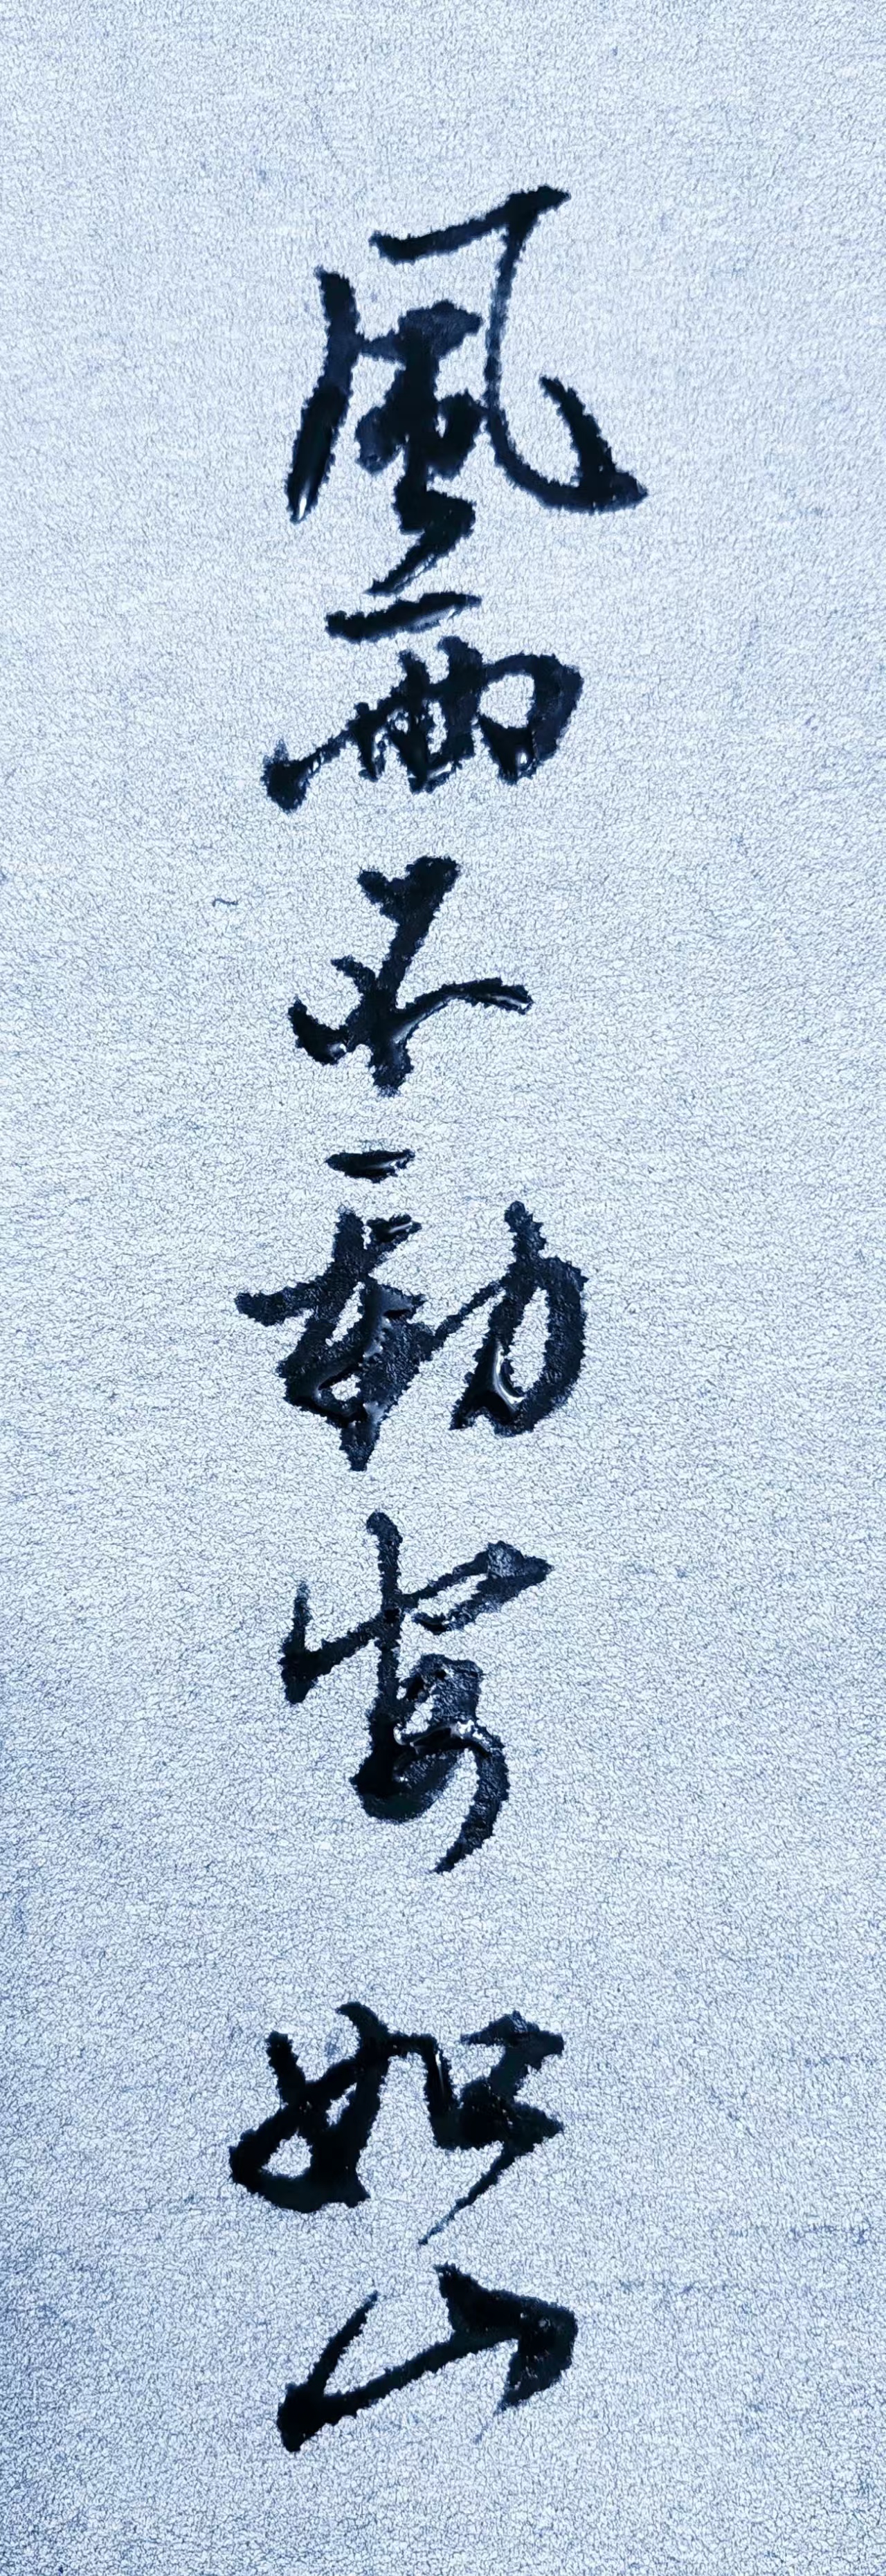 風雨不動安如山